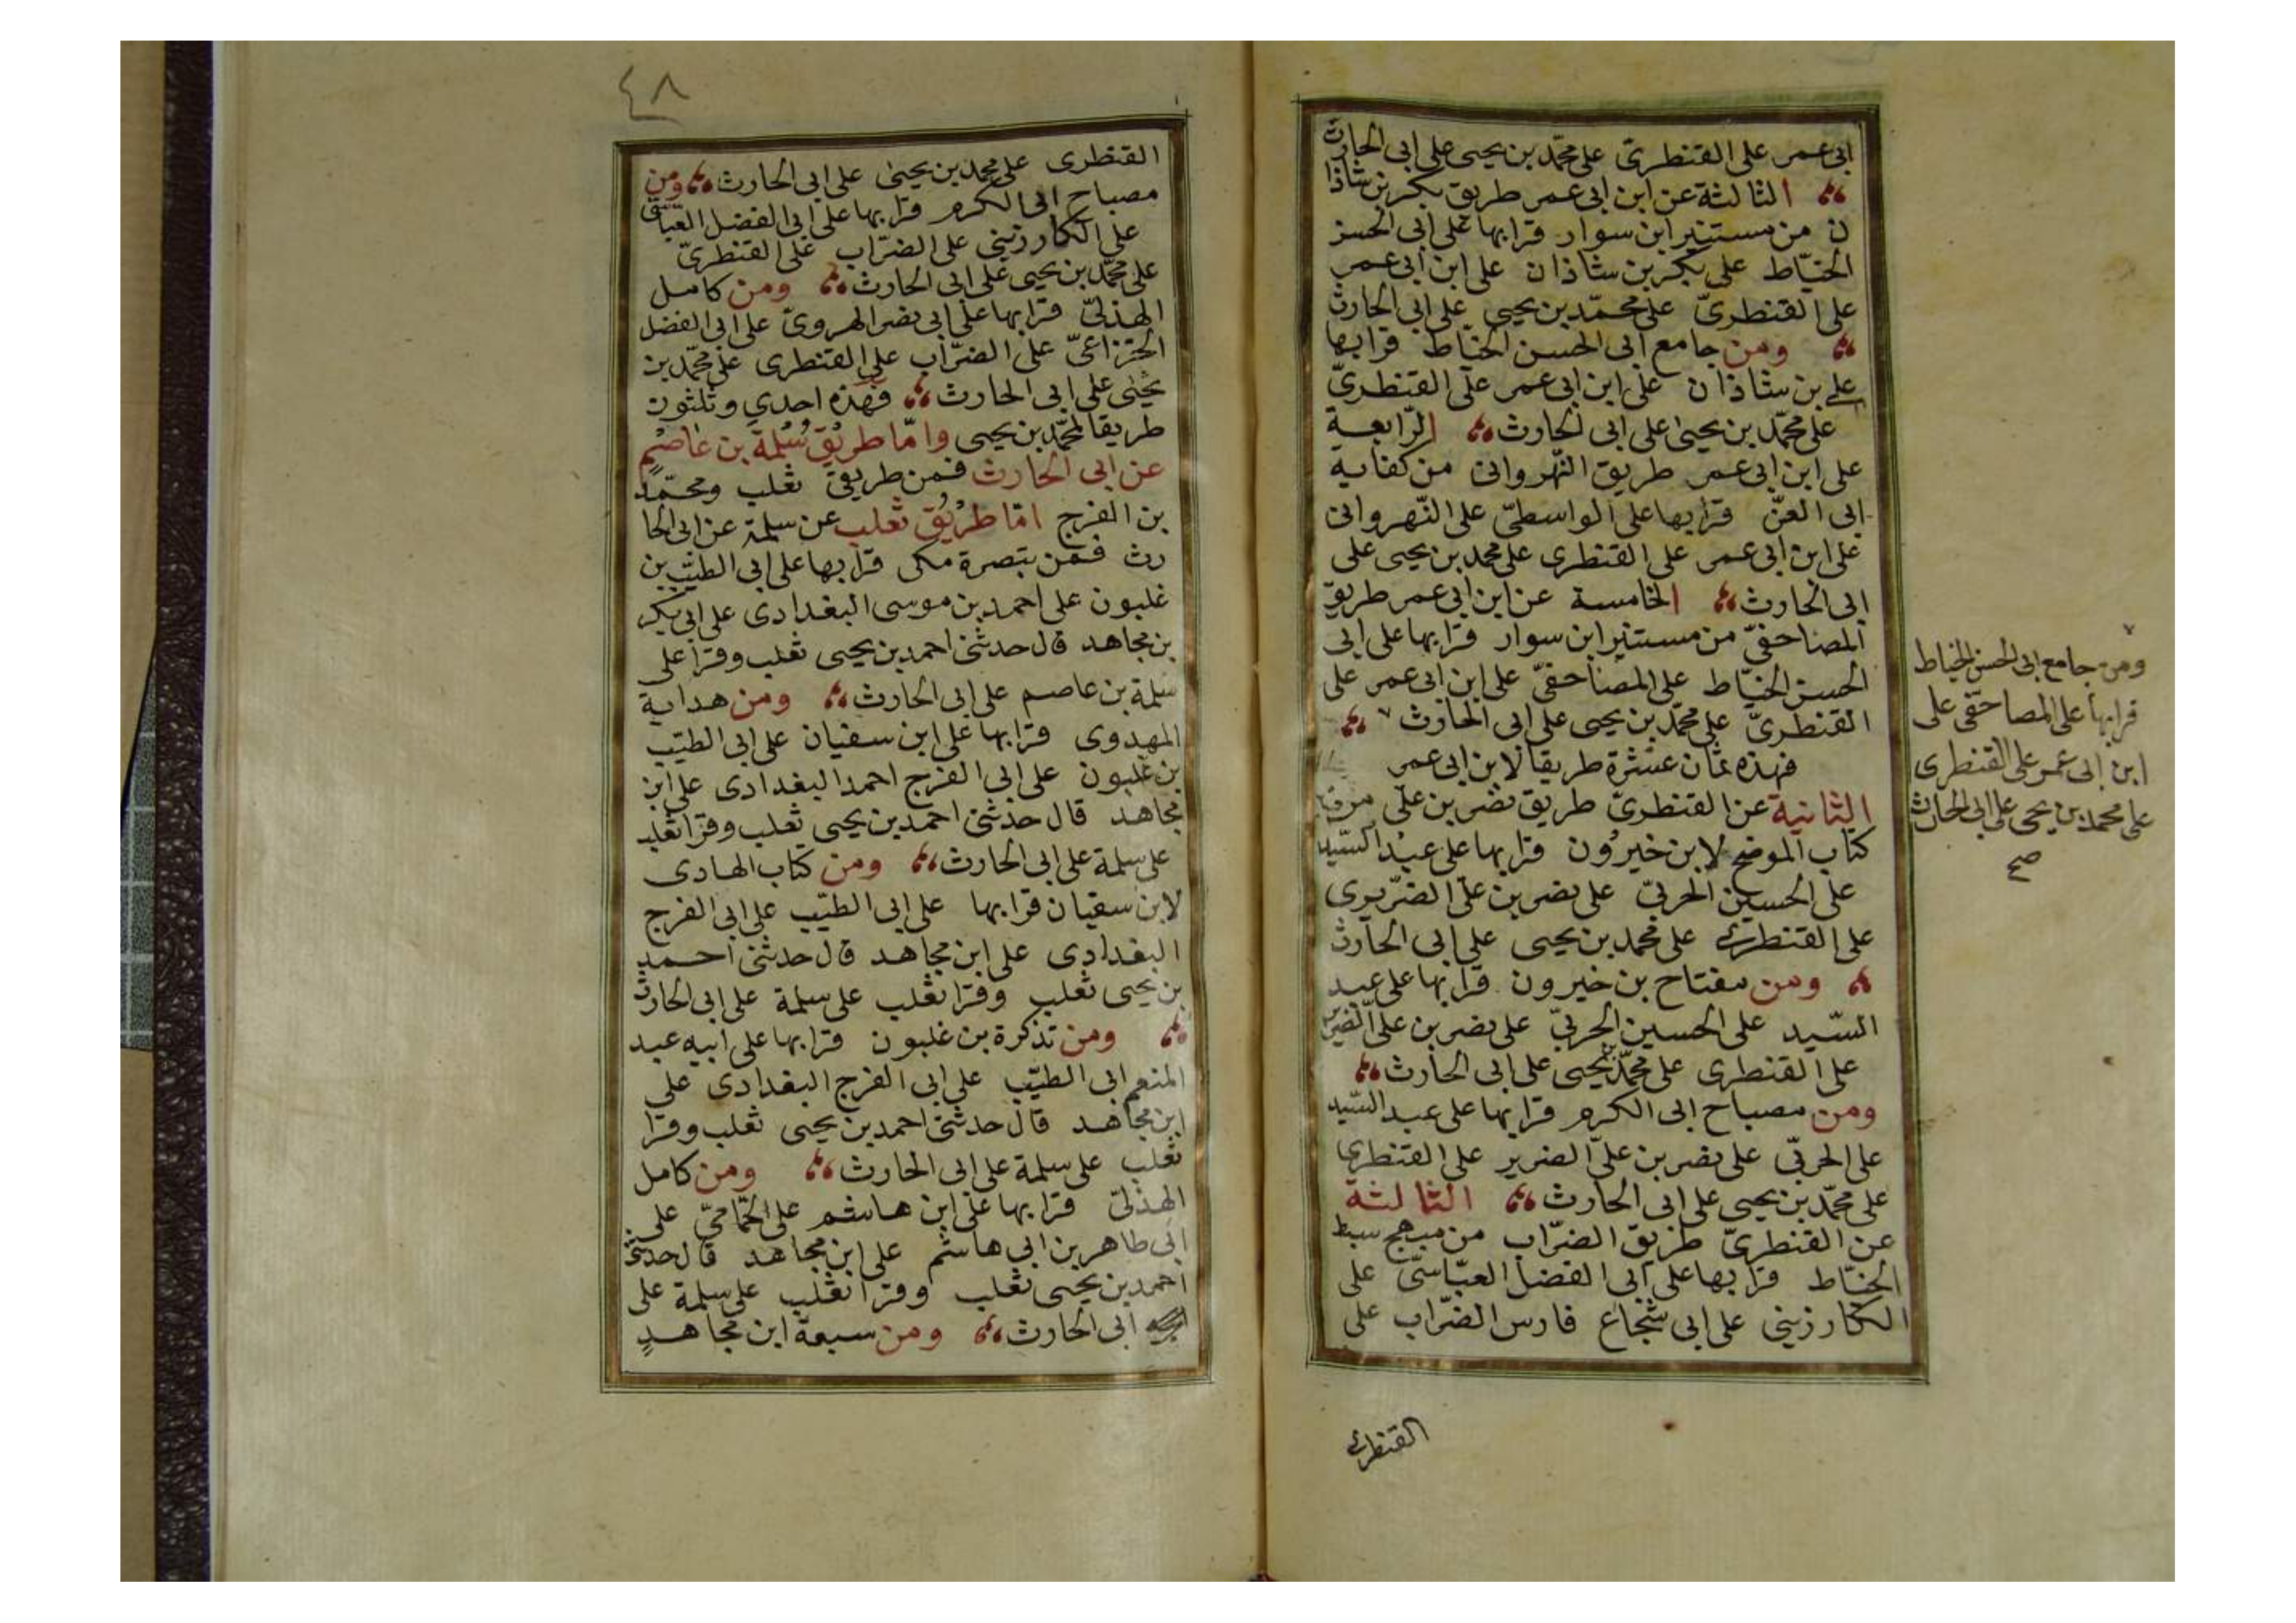 ابى عمر على القنطرىّ على محمّد بن يحيى على ابى الحارث
الثالثة عن ابن ابى عمر طريق بكر بن شاذا
ن من مستنير ابن سوار قرا بها على ابى الحسن
الخيّاط على بكر بن شاذان على ابن ابى عمر
على القنطرىّ على محمّد بن يحيى على ابى الحارث
ومن جامع ابى الحسن الخيّاط قرا بها
على بن شاذان على ابن ابى عمر على القنطرىّ
على محمّد بن يحيى على ابى الحارث الرّابعة
على ابن ابى عمر طريق النّهروانى من كفاية
ابى العزّ قرا بها على الواسطىّ على النّهروانى
على ابن ابى عمر على القنطرى على محمد بن يحيى على
ابى الحارث الخامسة عن ابن ابى عمر طريق
المصاحفىّ من مستنير ابن سوار قرا بها على ابى
الحسن الخيّاط على المصاحفىّ على ابن ابى عمر على
القنطرىّ على محمّد بن يحيى على ابى الحارث
فهذه ثمان عشرة طريقا لابن ابى عمر
الثانية عن القنطرىّ طريق نصر بن علىّ من
كتاب الموضح لابن خيرون قرا بها على عبد السّيد
على الحسين الحربىّ على نصر بن على الضرير
على القنطرى على محمد بن يحيى على ابى الحارث
ومن مفتاح بن خيرون قرا بها على عبد
السّيد على الحسين الحربىّ على نصر بن على الضرير
على القنطرى على محمّد بن يحيى على ابى الحارث
ومن مصباح ابى الكرم قرا بها على عبد السّيد
على الحربّى على نصر بن علىّ الضرير على القنطرى
على محمّد بن يحيى على ابى الحارث الثالثة
عن القنطرىّ طريق الضرّاب من مبهج سبط
الخيّاط قرا بها على ابى الفضل العبّاسىّ على
الكارزينى على ابى شجاع فارس الضرّاب على
القنطرى
ومن جامع ابى الحسن الخياط
قرا بها على المصاحفى على
ابن ابى عمر على القنطرى
على محمد بن يحيى على ابى الحارث
صح
٤٨
القنطرى على محمد بن يحيى على ابى الحارث ومن
مصباح ابى الكرم قرا بها على ابى الفضل العبّاسى
على الكارزينى على الضرّاب على القنطرىّ
على محمّد بن يحيى على ابى الحارث ومن كامل
الهذلىّ قرا بها على ابى نصر الهروىّ على ابى الفضل
الخزاعىّ على الضرّاب على القنطرى على محمّد بن
يحيى على ابى الحارث فهذه احدى وثلثون
طريقا لمحمّد بن يحيى وامّا طريق سلمة بن عاصم
عن ابى الحارث فمن طريقى ثعلب ومحمّد
بن الفرج امّا طريق ثعلب عن سلمة عن ابى الحا
رث فمن تبصرة مكى قرا بها على ابى الطيّب بن
غلبون على احمد بن موسى البغدادى على ابى بكر
بن مجاهد قال حدثنى احمد بن يحيى ثعلب وقرا على
سلمة بن عاصم على ابى الحارث ومن هداية
المهدوى قرا بها على ابن سفيان على ابى الطيّب
بن غلبون على ابى الفرج احمد البغدادى على ابن
مجاهد قال حدثنى احمد بن يحيى ثعلب وقرا ثعلب
على سلمة على ابى الحارث ومن كتاب الهادى
لابن سفيان قرا بها على ابى الطيّب على ابى الفرج
البغدادى على ابن مجاهد قال حدثنى احمد
بن يحيى ثعلب وقرا ثعلب على سلمة على ابى الحارث
ومن تذكرة بن غلبون قرا بها على ابيه عبد
المنعم ابى الطيّب على ابى الفرج البغدادى على
ابن مجاهد قال حدثنى احمد بن يحيى ثعلب وقرا
ثعلب على سلمة على ابى الحارث ومن كامل
الهذلىّ قرا بها على ابن هاشم على الحمّامىّ على
ابى طاهر بن ابى هاشم على ابن مجاهد قال حدثنى
احمد بن يحيى ثعلب وقرا ثعلب على سلمة على
ابى الحارث ومن سبعة ابن مجاهد